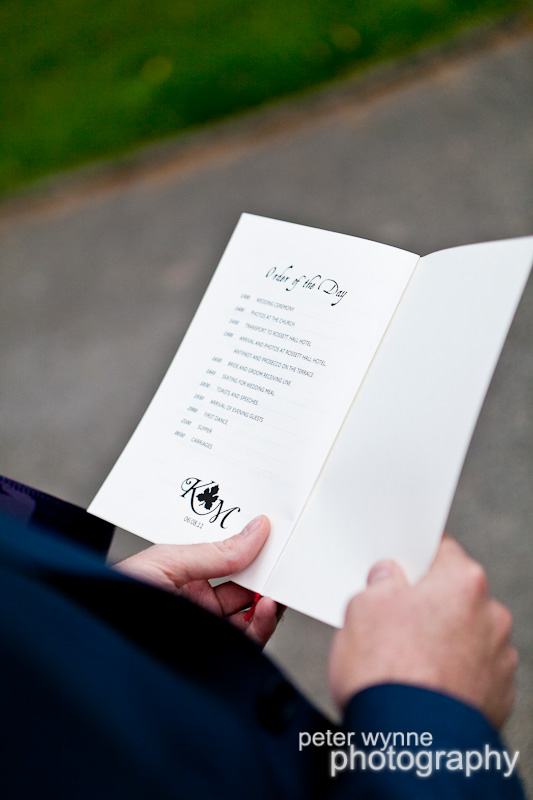 Order of the Day
WEDDING CEREMONY
PHOTOS AT THE CHURCH
TRANSPORT TO ROSSETT HALL HOTEL
ARRIVAL AND PHOTOS AT ROSSETT HALL HOTEL
ANTIPASTI AND PROSECCO ON THE TERRACE
BRIDE AND GROOM RECEIVING LINE
SEATING FOR WEDDING MEAL
TOASTS AND SPEECHES
ARRIVAL OF EVENING GUESTS
FIRST DANCE
SUPPER
CARRIAGES
K M
06.08.11
peter wynne
photography